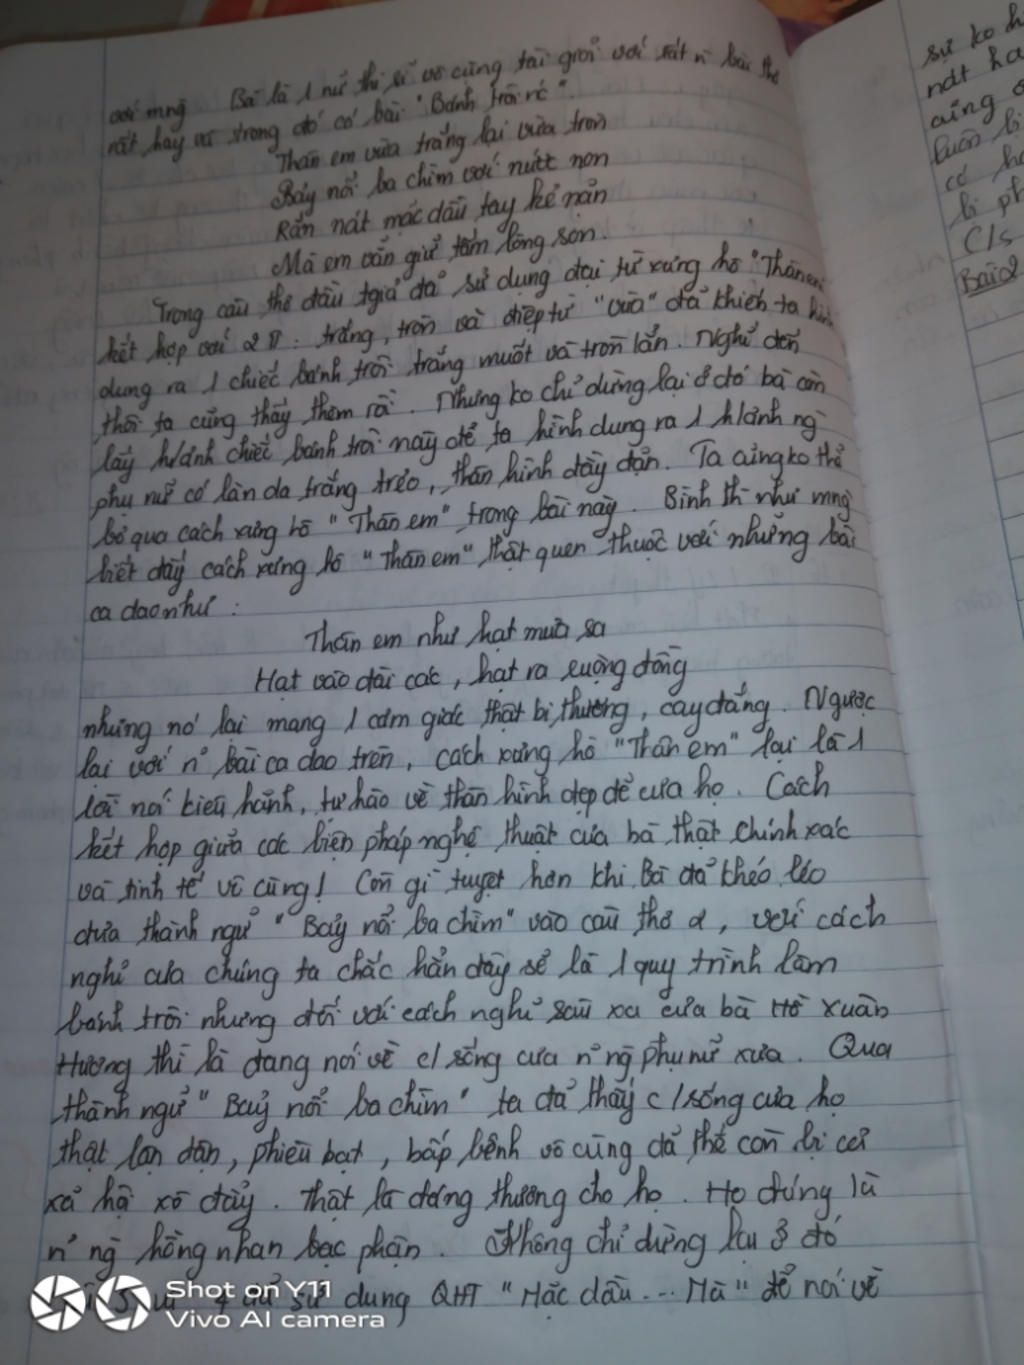 với mng Bà là 1 nữ thi sĩ vô cùng tài giỏi với rất n' bài thơ
rất hay và trong đó có bài "Bánh trôi nc".
Thân em vừa trắng lại vừa tròn
Bảy nổi ba chìm với nước non
Rắn nát mặc dầu tay kẻ nặn
Mà em vẫn giữ tấm lòng son.
Trong câu thơ đầu tgiả đã sử dụng đại từ xưng hô "Thân em
kết hợp với 2 TT: trắng, tròn và điệp từ "vừa" đã khiến ta hình
dung ra 1 chiếc bánh trôi trắng muốt và tròn lẳn. Nghĩ đến
thôi ta cũng thấy thèm rồi. Nhưng ko chỉ dừng lại ở đó bà còn
lấy h/ảnh chiếc bánh trôi này để ta hình dung ra 1 h/ảnh ng`
phụ nữ có làn da trắng trẻo, thân hình đầy đặn. Ta cũng ko thể
bỏ qua cách xưng hô "Thân em" trong bài này. Bình th` như mng`
biết đấy cách xưng hô "Thân em" thật quen thuộc với những bài
ca dao như :
Thân em như hạt mưa sa
Hạt vào đài các, hạt ra ruộng đồng
nhưng nó lại mang 1 cảm giác thật bi thương, cay đắng. Ngược
lại với n` bài ca dao trên, cách xưng hô "Thân em" lại là 1
lời nói kiêu hãnh, tự hào về thân hình đẹp đẽ của họ. Cách
kết hợp giữa các biện pháp nghệ thuật của bà thật chính xác
và tinh tế vô cùng! Còn gì tuyệt hơn khi Bà đã khéo léo
đưa thành ngữ "Bảy nổi ba chìm" vào câu thơ 2, với cách
nghĩ của chúng ta chắc hẳn đây sẽ là 1 quy trình làm
bánh trôi nhưng đối với cách nghĩ sâu xa của bà Hồ Xuân
Hương thì là đang nói về c/sống của n~ ng` phụ nữ xưa. Qua
thành ngữ "Bảy nổi ba chìm" ta đã thấy c/sống của họ
thật lận đận, phiêu bạt, bấp bênh vô cùng đã thế còn bị cả
xã hội xô đẩy. Thật là đáng thương cho họ. Họ đúng là
n~ ng` hồng nhan bạc phận. Không chỉ dừng lại ở đó
4 đã sử dụng QHT "Mặc dầu... Mà" để nói về
Shot on Y11
Vivo AI camera
sự ko
nát
cũng
luôn bị
có
bị ph
C/s
Bài 2